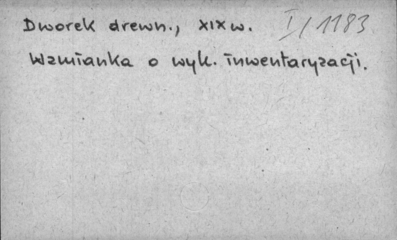 Dworek drewn., XIX w. I/1183
Wzmianka o wyk. inwentaryzacji.